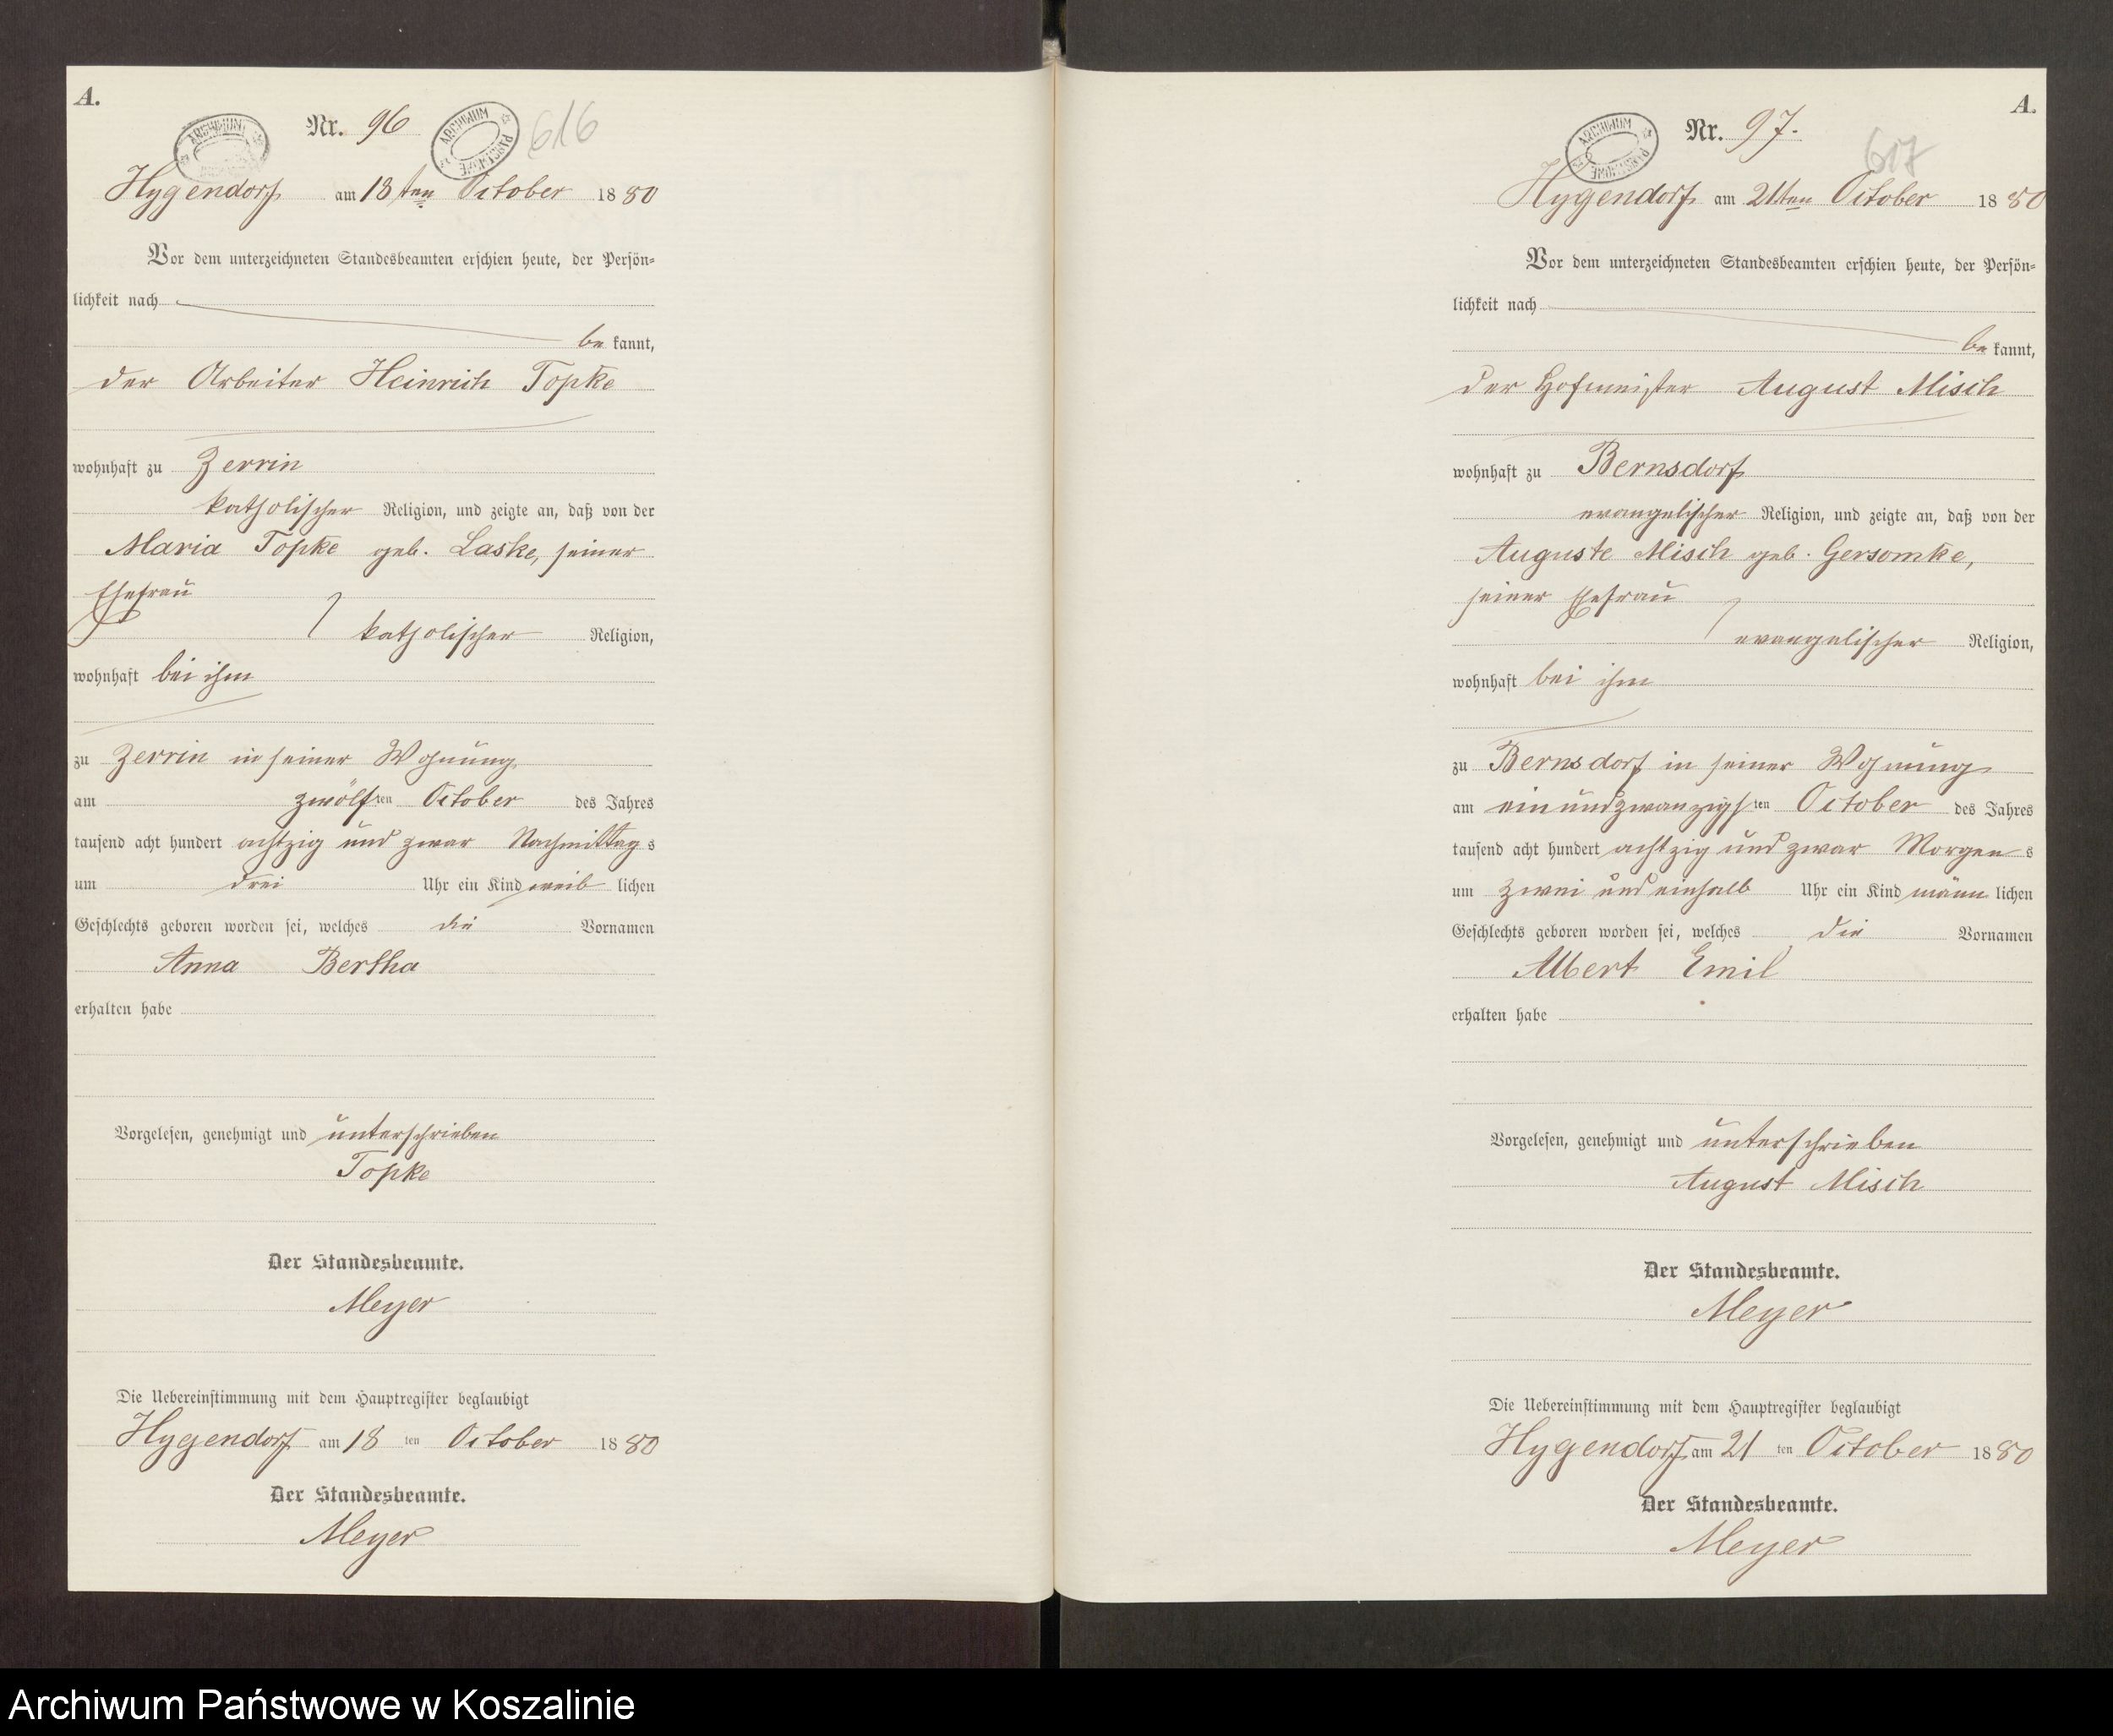 A.
Nr. 96
616
ARCHIWUM PAŃSTWOWE
Hygendorf am 18ten October 1880
Vor dem unterzeichneten Standesbeamten erschien heute, der Persön-
lichkeit nach
be kannt,
der Arbeiter Heinrich Topke
wohnhaft zu Zerrin
katholischer Religion, und zeigte an, daß von der
Maria Topke geb. Laske, seiner
Ehefrau
katholischer Religion,
wohnhaft bei ihm
zu Zerrin in seiner Wohnung
am zwölf ten October des Jahres
tausend acht hundert achtzig und zwar Nachmittag s
um drei Uhr ein Kind weib lichen
Geschlechts geboren worden sei, welches die Vornamen
Anna Bertha
erhalten habe
Vorgelesen, genehmigt und unterschrieben
Topke
Der Standesbeamte.
Meyer
Die Uebereinstimmung mit dem Hauptregister beglaubigt
Hygendorf am 18 ten October 1880
Der Standesbeamte.
Meyer
A.
Nr. 97.
617
ARCHIWUM PAŃSTWOWE
Hygendorf am 21ten October 1880
Vor dem unterzeichneten Standesbeamten erschien heute, der Persön-
lichkeit nach
be kannt,
der Hofmeister August Misch
wohnhaft zu Bernsdorf
evangelischer Religion, und zeigte an, daß von der
Auguste Misch geb. Gersomke,
seiner Ehefrau
evangelischer Religion,
wohnhaft bei ihm
zu Bernsdorf in seiner Wohnung
am einundzwanzigs ten October des Jahres
tausend acht hundert achtzig und zwar Morgen s
um zwei und einhalb Uhr ein Kind männ lichen
Geschlechts geboren worden sei, welches die Vornamen
Albert Emil
erhalten habe
Vorgelesen, genehmigt und unterschrieben
August Misch
Der Standesbeamte.
Meyer
Die Uebereinstimmung mit dem Hauptregister beglaubigt
Hygendorf am 21 ten October 1880
Der Standesbeamte.
Meyer
Archiwum Państwowe w Koszalinie